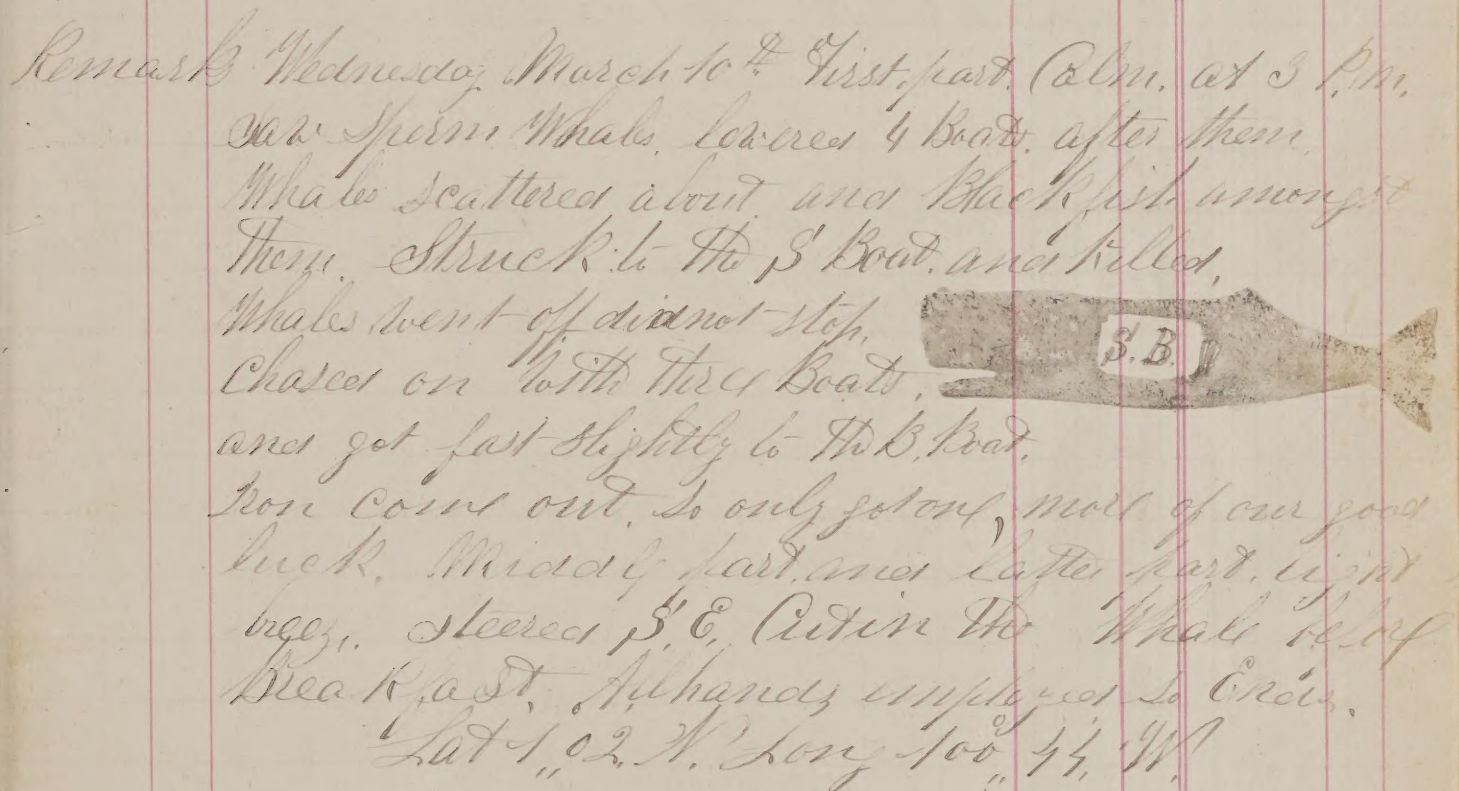 Remarks Wednesday March 10th First part Calm. at 3 P.M.
saw Sperm Whales. lowered 4 Boats. after them.
Whales scattered about and Blackfish amongst
them. Struck to the S Boat. and killed.
Whales went off did not stop.
S.B.
Chased on with three Boats.
and got fast slightly to the B. Boat.
Iron come out. so only got one, more of our good
luck. Middle part and latter part. light
breez. steered S.E. Cut in the Whale before
Breakfast. All hands employed So Ends.
Lat 1,,02. N. Long 100°,,44. W.